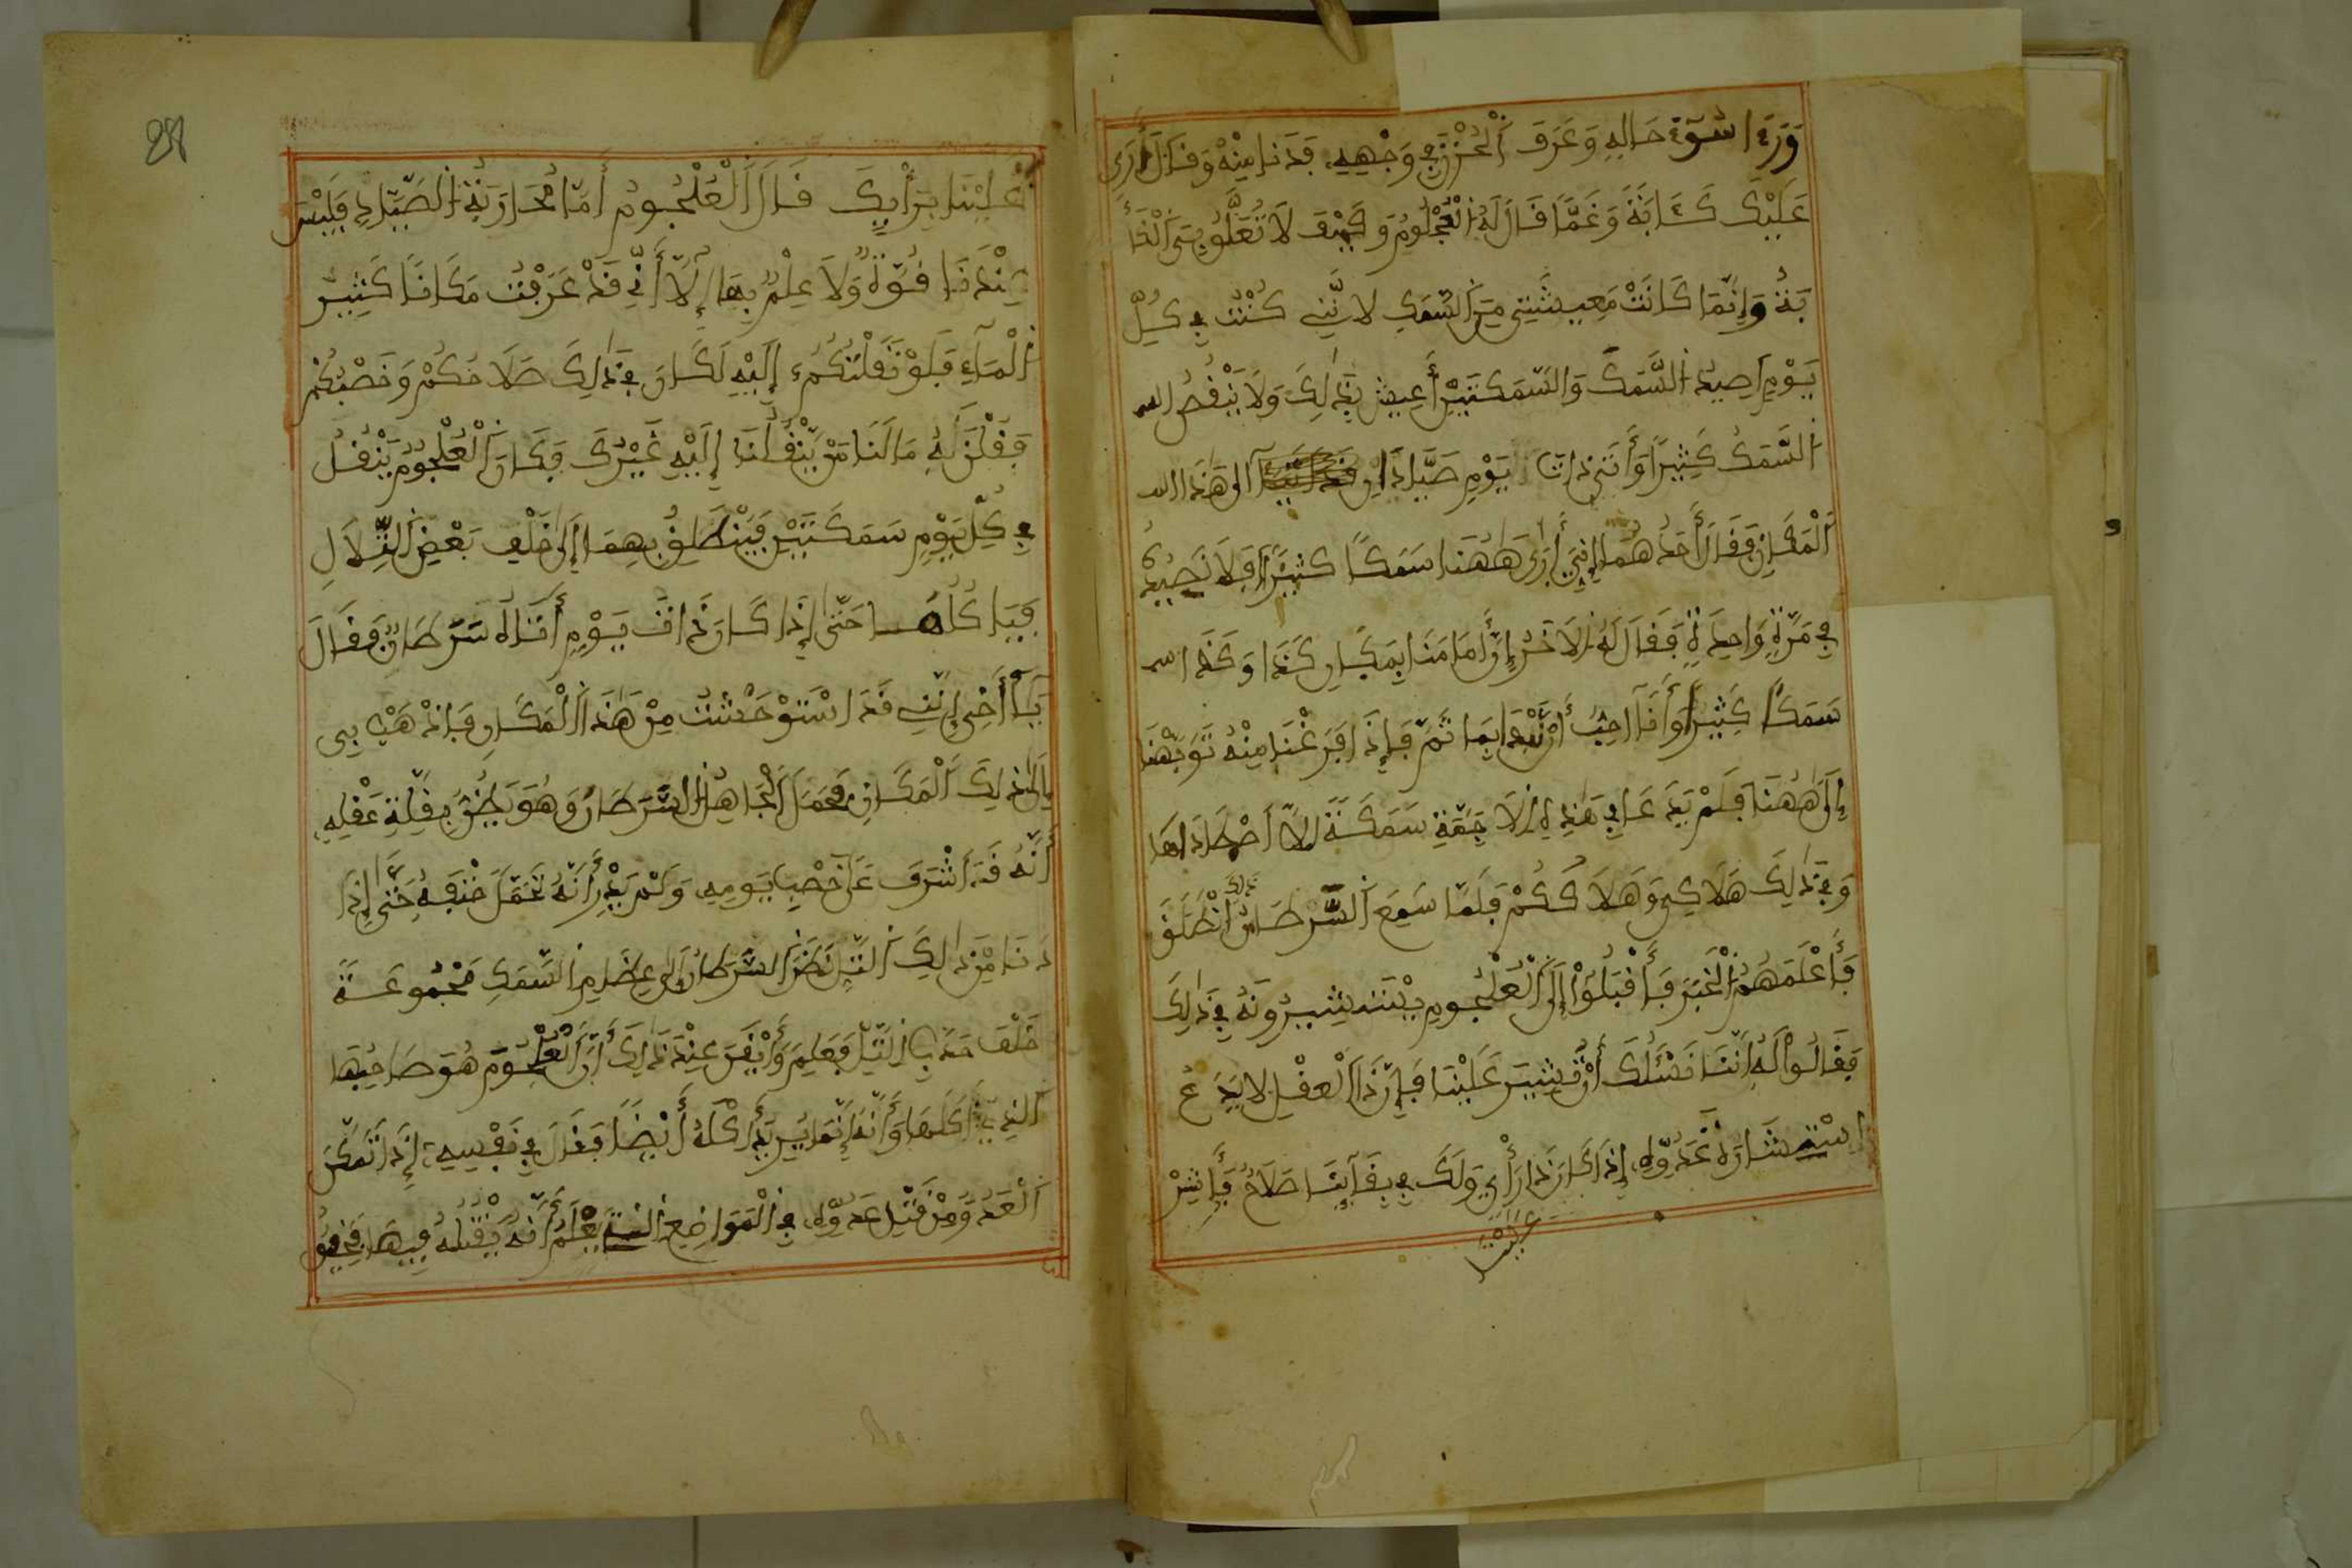 وَرَءَا سُوءَ حَالِهِ وَعَرَفَ اَلْحُزْنَ فِي وَجْهِهِ فَدَنَا مِنْهُ وَقَالَ أَرَى
عَلَيْكَ كَـَٔابَةً وَغَمًّا قَالَ لَهُ الْعُجْلُومُ وَكَيْفَ لَا
وَإِنَّمَا كَانَتْ مَعِيشَتِي مِنَ السَّمَكِ لِأَنَّنِي كُنْتُ فِي كُلِّ
يَوْمٍ أَصِيدُ السَّمَكَ وَالسَّمَكَتَيْنِ أَعِيشُ بِذَلِكَ وَلَا يَنْقُصُ
السَّمَكُ كَثِيرًا وَأَتَى ذَاتَ يَوْمٍ صَيَّادَانِ إِلَى هَذَا
الْمَكَانِ فَقَالَ أَحَدُهُمَا إِنِّي أَرَى هَاهُنَا سَمَكًا كَثِيرًا أَفَلَا نَصِيدُهُ
فِي مَرَّةٍ وَاحِدَةٍ فَقَالَ لَهُ الْآخَرُ إِنَّ أَمَامَنَا بِمَكَانِ كَذَا وَكَذَا
سَمَكًا كَثِيرًا وَأَنَا أُحِبُّ أَنْ نَبْدَأَ بِمَا ثَمَّ فَإِذَا فَرَغْنَا مِنْهُ تَوَجَّهْنَا
إِلَى هَاهُنَا فَلَمْ يَدَعَا فِي هَذِهِ الْأَجَمَةِ سَمَكَةً إِلَّا اصْطَادَاهَا
وَفِي ذَلِكَ هَلَاكِي وَهَلَاكُكُمْ فَلَمَّا سَمِعَ السَّرَطَانُ ذلك انْطَلَقَ
فَأَعْلَمَهُمُ الْخَبَرَ فَأَقْبَلُوا إِلَى الْعُلْجُومِ يَسْتَشِيرُونَهُ فِي ذَلِكَ
فَقَالُوا لَهُ إِنَّنَا نَسْئَلُكَ أَنْ تُشِيرَ عَلَيْنَا فَإِنَّ ذَا الْعَقْلِ لَا يَدَعُ
اسْتِشَارَةَ عَدُوِّهِ إِذَا كَانَ ذَا رَأْيٍ وَلَكَ فِي بَقَائِنَا صَلَاحٌ فَأَشِرْ
عَلَيْنَا
28
عَلَيْنَا بِرَأْيِكَ قَالَ الْعُلْجُومُ أَمَّا مُحَارَبَةُ الصَّيَّادِ فَلَيْسَ
عِنْدَنَا قُوَّةٌ وَلَا عِلْمٌ بِهَا إِلَّا أَنِّي قَدْ عَرَفْتُ مَكَانًا كَثِيرَ
الْمَاءِ فَلَوْ نَقَلْتُكُمْ إِلَيْهِ لَكَانَ فِي ذَلِكَ صَلَاحُكُمْ وَخَصْبُكُمْ
فَقُلْنَ لَهُ مَا لَنَا مَنْ يَنْقُلُنَا إِلَيْهِ غَيْرُكَ فَكَانَ الْعُلْجُومُ يَنْقُلُ
فِي كُلِّ يَوْمٍ سَمَكَتَيْنِ فَيَنْطَلِقُ بِهِمَا إِلَى خَلْفِ بَعْضِ التِّلَالِ
فَيَاكُلُهُمَا حَتَّى إِذَا كَانَ ذَاتَ يَوْمٍ أَتَاهُ سَرَطَانٌ فَقَالَ
يَا أَخِي إِنَّنِي قَدِ اسْتَوْحَشْتُ مِنْ هَذَا الْمَكَانِ فَاذْهَبْ بِي
إِلَى ذَلِكَ الْمَكَانِ فَحَمَلَ الْجَاهِلُ السَّرَطَانَ وَهُوَ يَظُنُّ بِقِلَّةِ عَقْلِهِ
أَنَّهُ قَدْ أَشْرَفَ عَلَى خَصْبِ يَوْمِهِ وَلَمْ يَدْرِ أَنَّهُ تَحَمَّلَ حَتْفَهُ حَتَّى إِذَا
دَنَا مِنْ ذَلِكَ التَّلِّ نَظَرَ السَّرَطَانُ إِلَى عِظَامِ السَّمَكِ مَجْمُوعَةً
خَلْفَ حَدَبِ التَّلِّ فَعَلِمَ وَأَيْقَنَ عِنْدَ ذَلِكَ أَنَّ الْعُلْجُومَ هُوَ صَاحِبُهَا
الَّذِي أَكَلَهَا وَأَنَّهُ إِنَّمَا يُرِيدُ أَكْلَهُ أَيْضًا فَقَالَ فِي نَفْسِهِ إِذَا تَمَكَّنَ
الْعَدُوُّ مِنْ قَتْلِ عَدُوِّهِ فِي الْمَوَاضِعِ الَّتِي يَعْلَمُ أَنَّهُ يَقْتُلُهُ فِيهَا